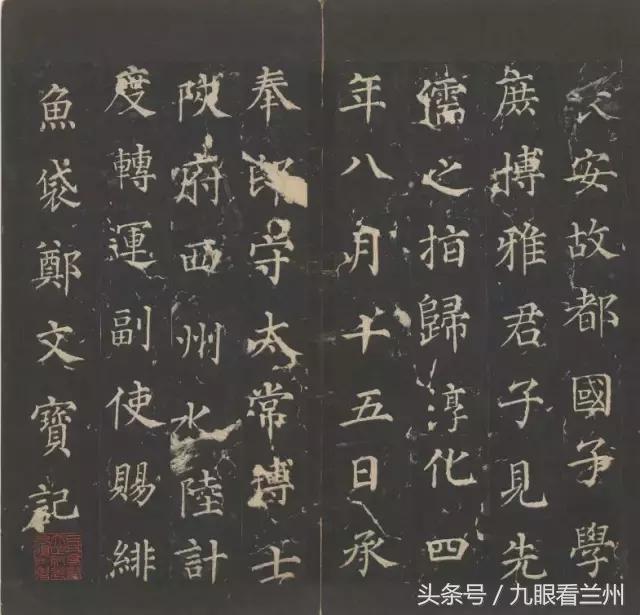 長安故都國子學
庶博雅君子見先
儒之指歸淳化四
年八月十五日承
奉郎守太常博士
陝府西州水陸計
度轉運副使賜緋
魚袋鄭文寶記
头条号／九眼看兰州